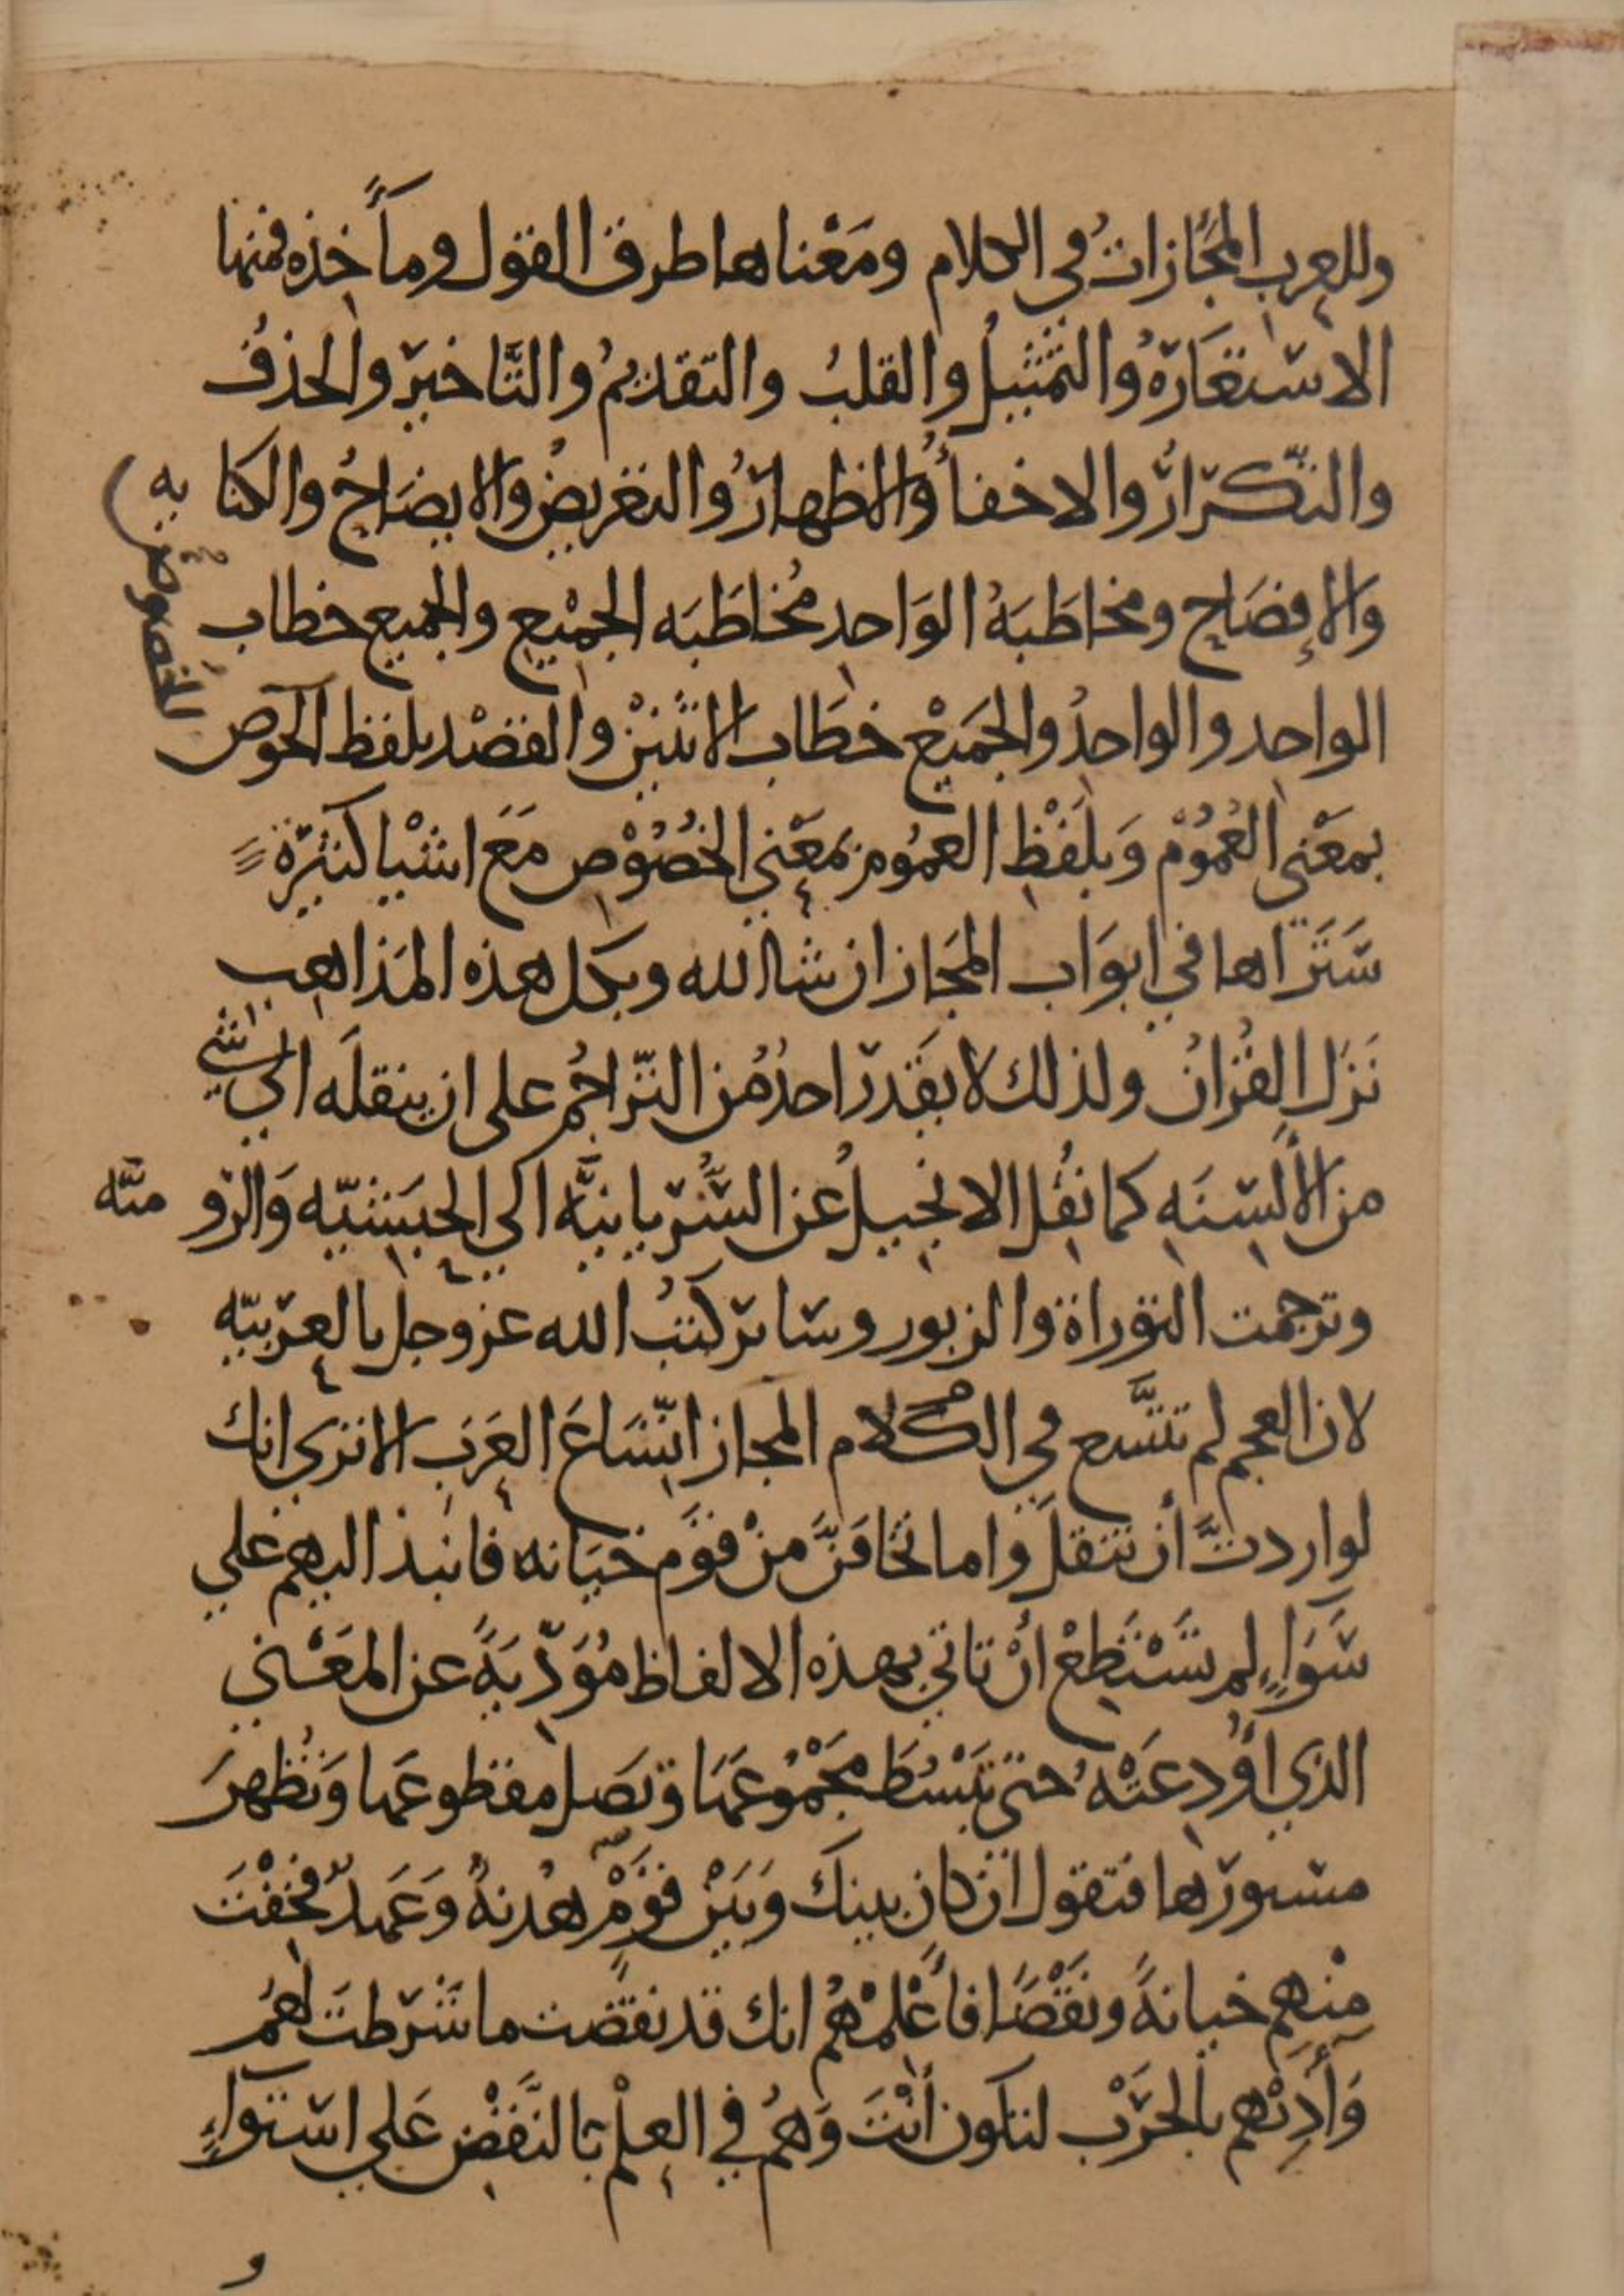 وللعرب المجازاتُ في الكلام ومَعْناها طرق القول ومآخذه فمنها
الاستعَارَةُ والتمثيلُ والقلبُ والتقديمُ والتَّاخير والحذفُ
والتّكرارُ والاخفأُ والاظهارُ والتعريضُ والايضَاحُ والكنا يه
والإفصَاح ومخاطَبَهُ الوَاحدِ مُخاطَبَه الجمْيعِ والجميع خطاب
الواحِد والواحدُ والجَميعْ خطَاب الاثنَيْن والقصْد بلفظ الخوص
للخصوص
بمعَْنى العُمُوْم وَبلَفْظِ العمُومِ بمَعْني الخُصُوْصِ مَعَ اشْيا كثيَرة
سَتَرَاها في ابوَاب المجَاز ان شا الله وبكل هذه المَذاهِب
نَزَل القُرْانُ ولذلك لا يقَدر احدُ مُن التّراجُم على ان ينقلَه الي شي
من الألِسِنَهِ كما نُقِل الانجِيلُ عن السُّرْيانيَّه الي الحبَشيّه وَالرّو ميّه
وترجمت التوراة والزبور وسَاير كتبُ الله عز وجل بالعرَبيّه
لان العجم لم تتَّسع في الكلام المجاز اتّسَاعَ العَرَب الا تري انك
لو اردتَّ أن تنقل واما تخَافَنَّ مِنْ قوَم خيَانه فانبذ اليهم علي
سَوَاءٍ لم تَسْتَطِعْ أنْ تاتي بهذه الالفاظ مُوَدّيَةً عن المعَْني
الذي أوُدِعَتْهُ حتى تَبْسُطَ مجَْمُوعَهَا وتصَل مقطوعَها وَتُظهرَ
مستورَها فتقول ان كان بينكَ وَبَيْن قوَْمٍ هُدنهٌ وَعَهدٌ فخِفْتَ
مِنْهم خيانةً ونَقْضًا فأعَْلِمْهُمْ انك قد نقضت ما شرطتَ لهُم
وَأذِنْهم بالحَرْب لتكون أنْتَ وَهمُ في العِلمْ بالنَّقْضِ عَلي اسْتواءٍ
و